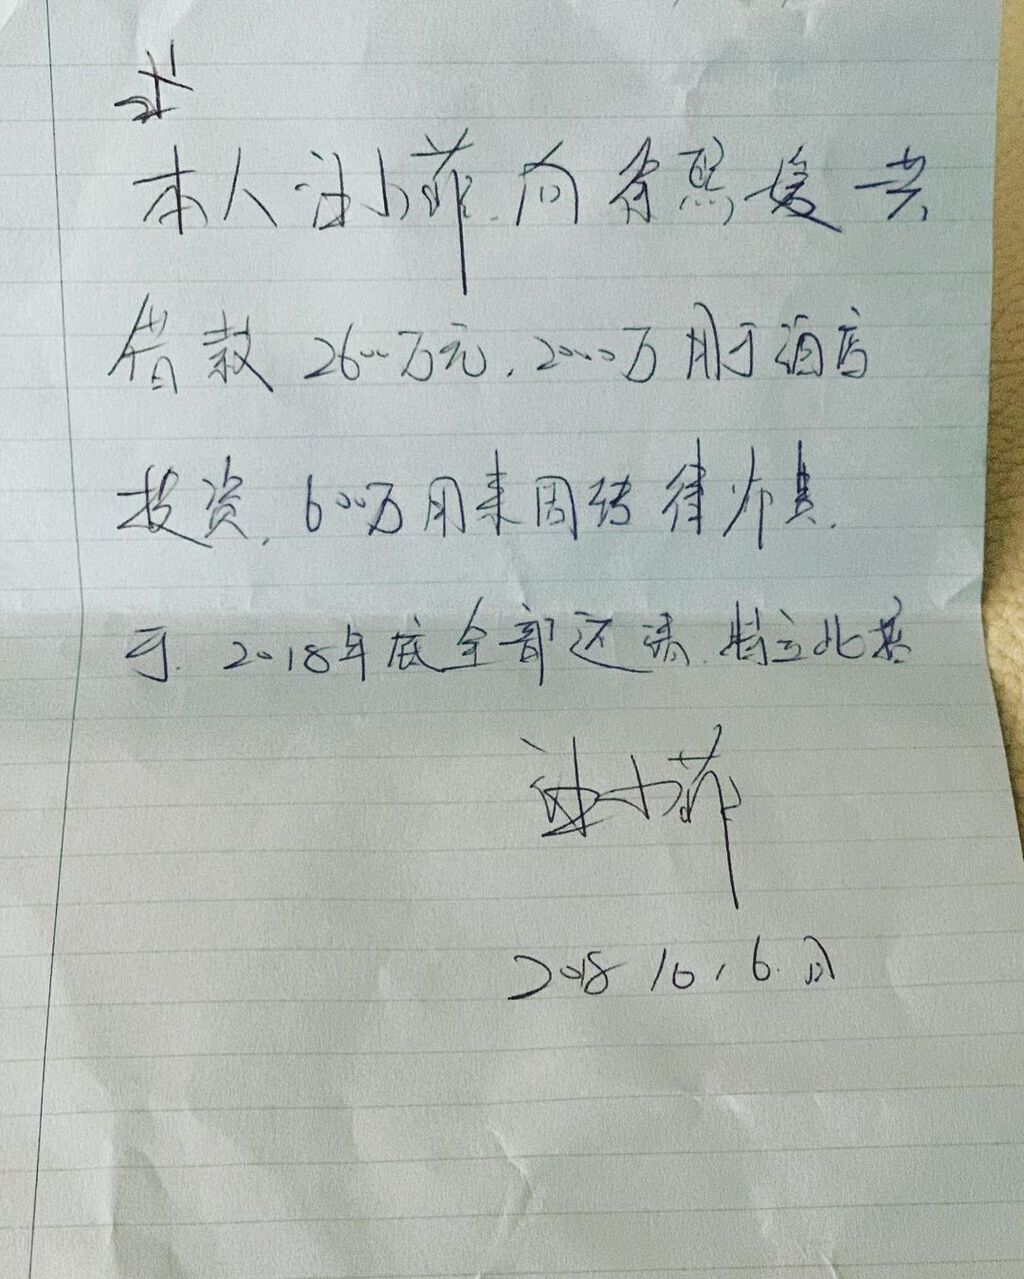 本人汪小菲.向徐熙媛共
借款2600万元.2000万用于酒店
投资.600万用来周转律师费.
于.2018年底全部还清.特立此据
汪小菲
2018 10,6.日